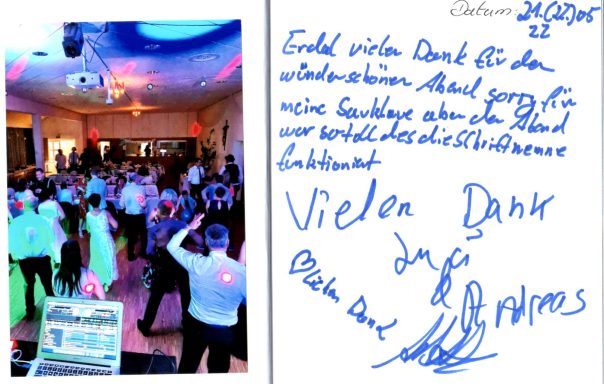 Datum: 21.(22.)05
22
Erdal vielen Dank für den
wünderschönen Abend sorry für
meine Sauklaue aber der Abend
war so toll das die Schrift
funktioniert
Vielen Dank
&
Andreas
Vielen Dank